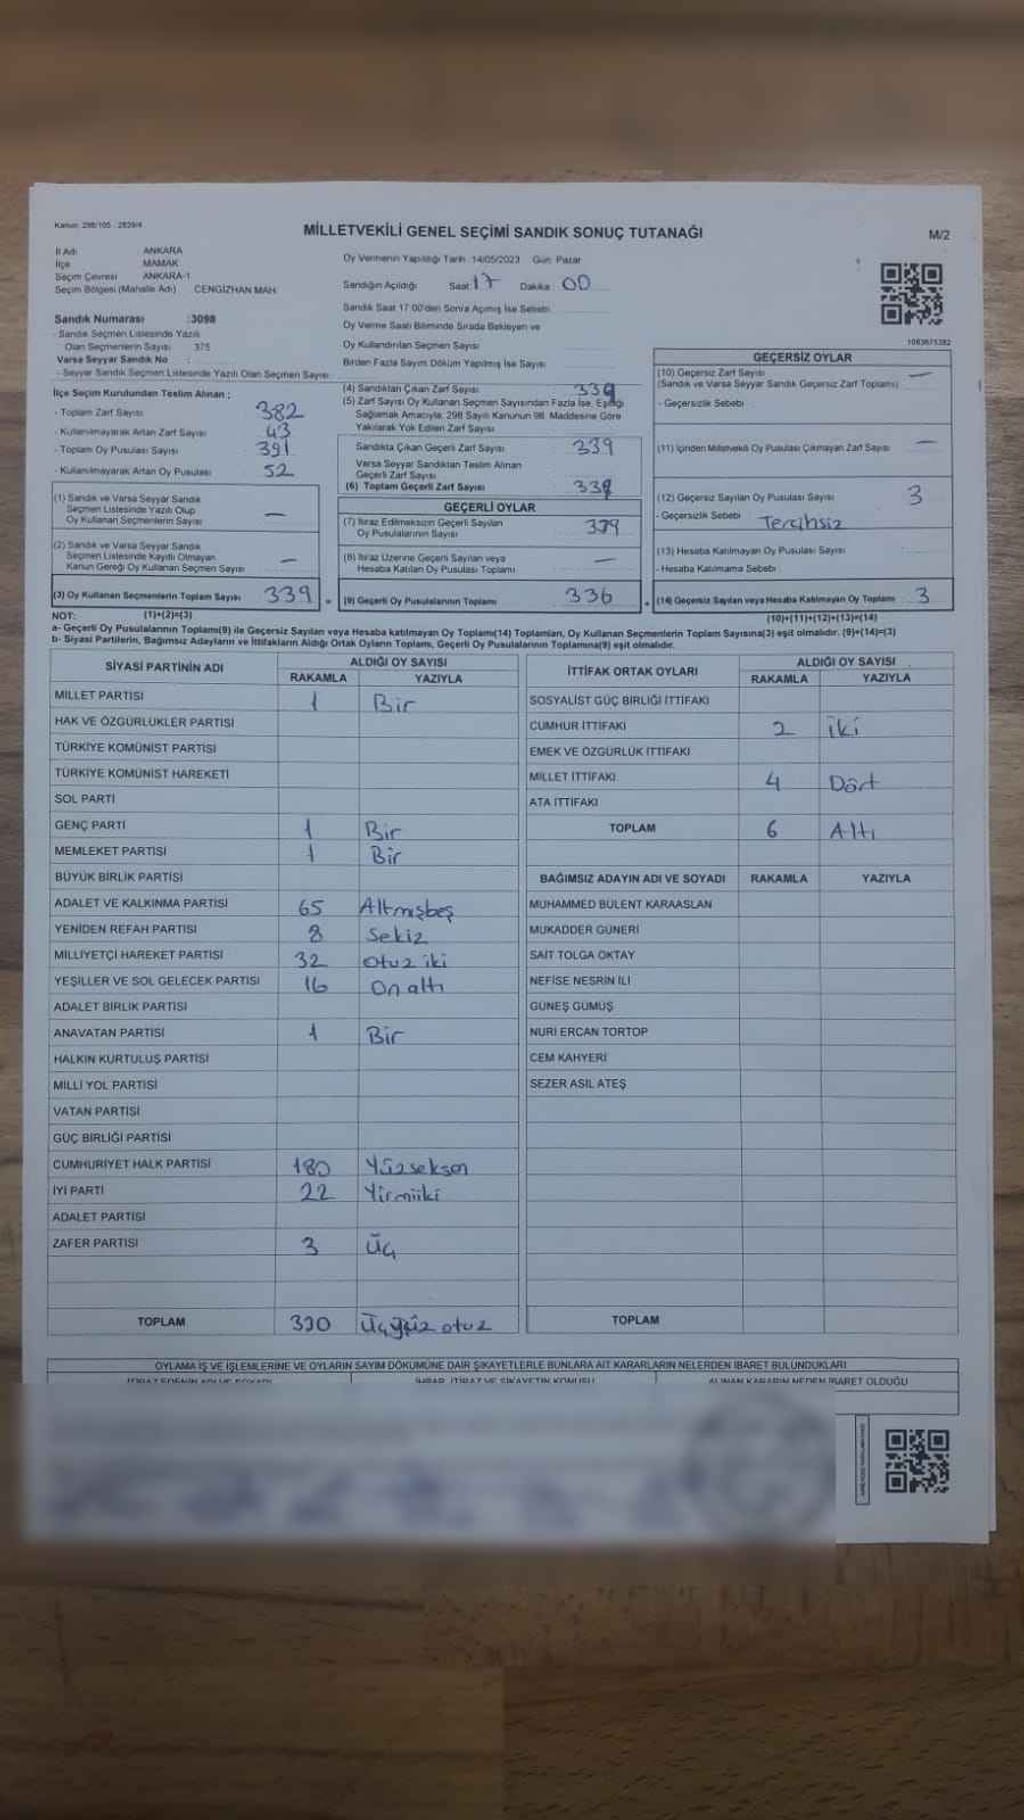 Kanun: 298/105 - 2839/4
MİLLETVEKİLİ GENEL SEÇİMİ SANDIK SONUÇ TUTANAĞI
M/2
İl Adı ANKARA
İlçe MAMAK
Seçim Çevresi ANKARA-1
Seçim Bölgesi (Mahalle Adı) CENGİZHAN MAH.
Oy Vermenin Yapıldığı Tarih :14/05/2023 Gün: Pazar
Sandığın Açıldığı Saat 17 Dakika 00
Sandık Saat 17:00'den Sonra Açılmış İse Sebebi
Oy Verme Saati Bitiminde Sırada Bekleyen ve
Oy Kullandırılan Seçmen Sayısı
Birden Fazla Sayım Döküm Yapılmış İse Sayısı
1063675382
Sandık Numarası :3098
- Sandık Seçmen Listesinde Yazılı
Olan Seçmenlerin Sayısı 375
Varsa Seyyar Sandık No :
- Seyyar Sandık Seçmen Listesinde Yazılı Olan Seçmen Sayısı
İlçe Seçim Kurulundan Teslim Alınan ;
- Toplam Zarf Sayısı 382
- Kullanılmayarak Artan Zarf Sayısı 43
- Toplam Oy Pusulası Sayısı 391
- Kullanılmayarak Artan Oy Pusulası 52
(1) Sandık ve Varsa Seyyar Sandık
Seçmen Listesinde Yazılı Olup
Oy Kullanan Seçmenlerin Sayısı —
(2) Sandık ve Varsa Seyyar Sandık
Seçmen Listesinde Kayıtlı Olmayan
Kanun Gereği Oy Kullanan Seçmen Sayısı —
(3) Oy Kullanan Seçmenlerin Toplam Sayısı 339
(4) Sandıktan Çıkan Zarf Sayısı 339
(5) Zarf Sayısı Oy Kullanan Seçmen Sayısından Fazla İse, Eşitliği
Sağlamak Amacıyla, 298 Sayılı Kanunun 98. Maddesine Göre
Yakılarak Yok Edilen Zarf Sayısı
Sandıkta Çıkan Geçerli Zarf Sayısı 339
Varsa Seyyar Sandıktan Teslim Alınan
Geçerli Zarf Sayısı
(6) Toplam Geçerli Zarf Sayısı 339
GEÇERLİ OYLAR
(7) İtiraz Edilmeksizin Geçerli Sayılan
Oy Pusulalarının Sayısı
(8) İtiraz Üzerine Geçerli Sayılan veya
Hesaba Katılan Oy Pusulası Toplamı —
(9) Geçerli Oy Pusulalarının Toplamı 336
GEÇERSİZ OYLAR
(10) Geçersiz Zarf Sayısı
(Sandık ve Varsa Seyyar Sandık Geçersiz Zarf Toplamı) —
- Geçersizlik Sebebi
(11) İçinden Milletvekili Oy Pusulası Çıkmayan Zarf Sayısı —
(12) Geçersiz Sayılan Oy Pusulası Sayısı 3
- Geçersizlik Sebebi Tercihsiz
(13) Hesaba Katılmayan Oy Pusulası Sayısı
- Hesaba Katılmama Sebebi
(14) Geçersiz Sayılan veya Hesaba Katılmayan Oy Toplamı 3
NOT: (1)+(2)=(3)
(10)+(11)+(12)+(13)=(14)
a- Geçerli Oy Pusulalarının Toplamı(9) ile Geçersiz Sayılan veya Hesaba katılmayan Oy Toplamı(14) Toplamları, Oy Kullanan Seçmenlerin Toplam Sayısına(3) eşit olmalıdır. (9)+(14)=(3)
b- Siyasi Partilerin, Bağımsız Adayların ve İttifakların Aldığı Ortak Oyların Toplamı, Geçerli Oy Pusulalarının Toplamına(9) eşit olmalıdır.
SİYASİ PARTİNİN ADI ALDIĞI OY SAYISI
RAKAMLA YAZIYLA
MİLLET PARTİSİ 1 Bir
HAK VE ÖZGÜRLÜKLER PARTİSİ
TÜRKİYE KOMÜNİST PARTİSİ
TÜRKİYE KOMÜNİST HAREKETİ
SOL PARTİ
GENÇ PARTİ 1 Bir
MEMLEKET PARTİSİ 1 Bir
BÜYÜK BİRLİK PARTİSİ
ADALET VE KALKINMA PARTİSİ 65 Altmışbeş
YENİDEN REFAH PARTİSİ 8 Sekiz
MİLLİYETÇİ HAREKET PARTİSİ 32 otuz iki
YEŞİLLER VE SOL GELECEK PARTİSİ 16 On altı
ADALET BİRLİK PARTİSİ
ANAVATAN PARTİSİ 1 Bir
HALKIN KURTULUŞ PARTİSİ
MİLLİ YOL PARTİSİ
VATAN PARTİSİ
GÜÇ BİRLİĞİ PARTİSİ
CUMHURİYET HALK PARTİSİ 180 Yüzseksen
İYİ PARTİ 22 Yirmiiki
ADALET PARTİSİ
ZAFER PARTİSİ 3 Üç
TOPLAM 330 Üçyüz otuz
İTTİFAK ORTAK OYLARI ALDIĞI OY SAYISI
RAKAMLA YAZIYLA
SOSYALİST GÜÇ BİRLİĞİ İTTİFAKI
CUMHUR İTTİFAKI 2 iki
EMEK VE ÖZGÜRLÜK İTTİFAKI
MİLLET İTTİFAKI 4 Dört
ATA İTTİFAKI
TOPLAM 6 Altı
BAĞIMSIZ ADAYIN ADI VE SOYADI RAKAMLA YAZIYLA
MUHAMMED BÜLENT KARAASLAN
MUKADDER GÜNERİ
SAİT TOLGA OKTAY
NEFİSE NESRİN İLİ
GÜNEŞ GÜMÜŞ
NURİ ERCAN TORTOP
CEM KAHYERİ
SEZER ASIL ATEŞ
TOPLAM
OYLAMA İŞ VE İŞLEMLERİNE VE OYLARIN SAYIM DÖKÜMÜNE DAİR ŞİKAYETLERLE BUNLARA AİT KARARLARIN NELERDEN İBARET BULUNDUKLARI
İTİRAZ EDENİN ADI VE SOYADI İHBAR, İTİRAZ VE ŞİKAYETİN KONUSU ALINAN KARARIN NEDEN İBARET OLDUĞU